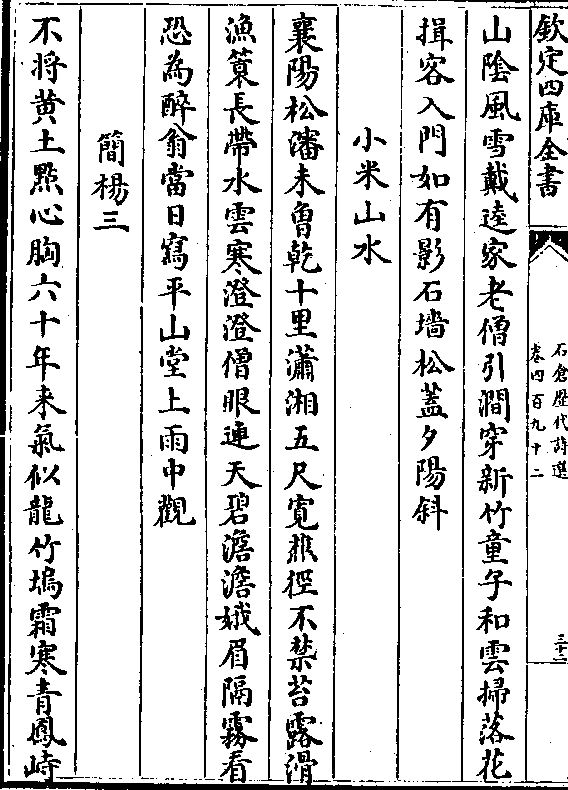 欽定四庫全書
石倉歴代詩選
卷四百九十二
三十二
山陰風雪戴逵家老僧引澗穿新竹童子和雲掃落花
揖客入門如有影石墻松蓋夕陽斜
小米山水
襄陽松瀋未曾乾十里瀟湘五尺寛樵徑不禁苔露滑
漁蓑長帶水雲寒澄澄僧眼連天碧澹澹娥眉隔霧看
恐為醉翁當日寫平山堂上雨中觀
簡楊三
不將黄土㸃心胸六十年来氣似龍竹塢霜寒青鳳峙